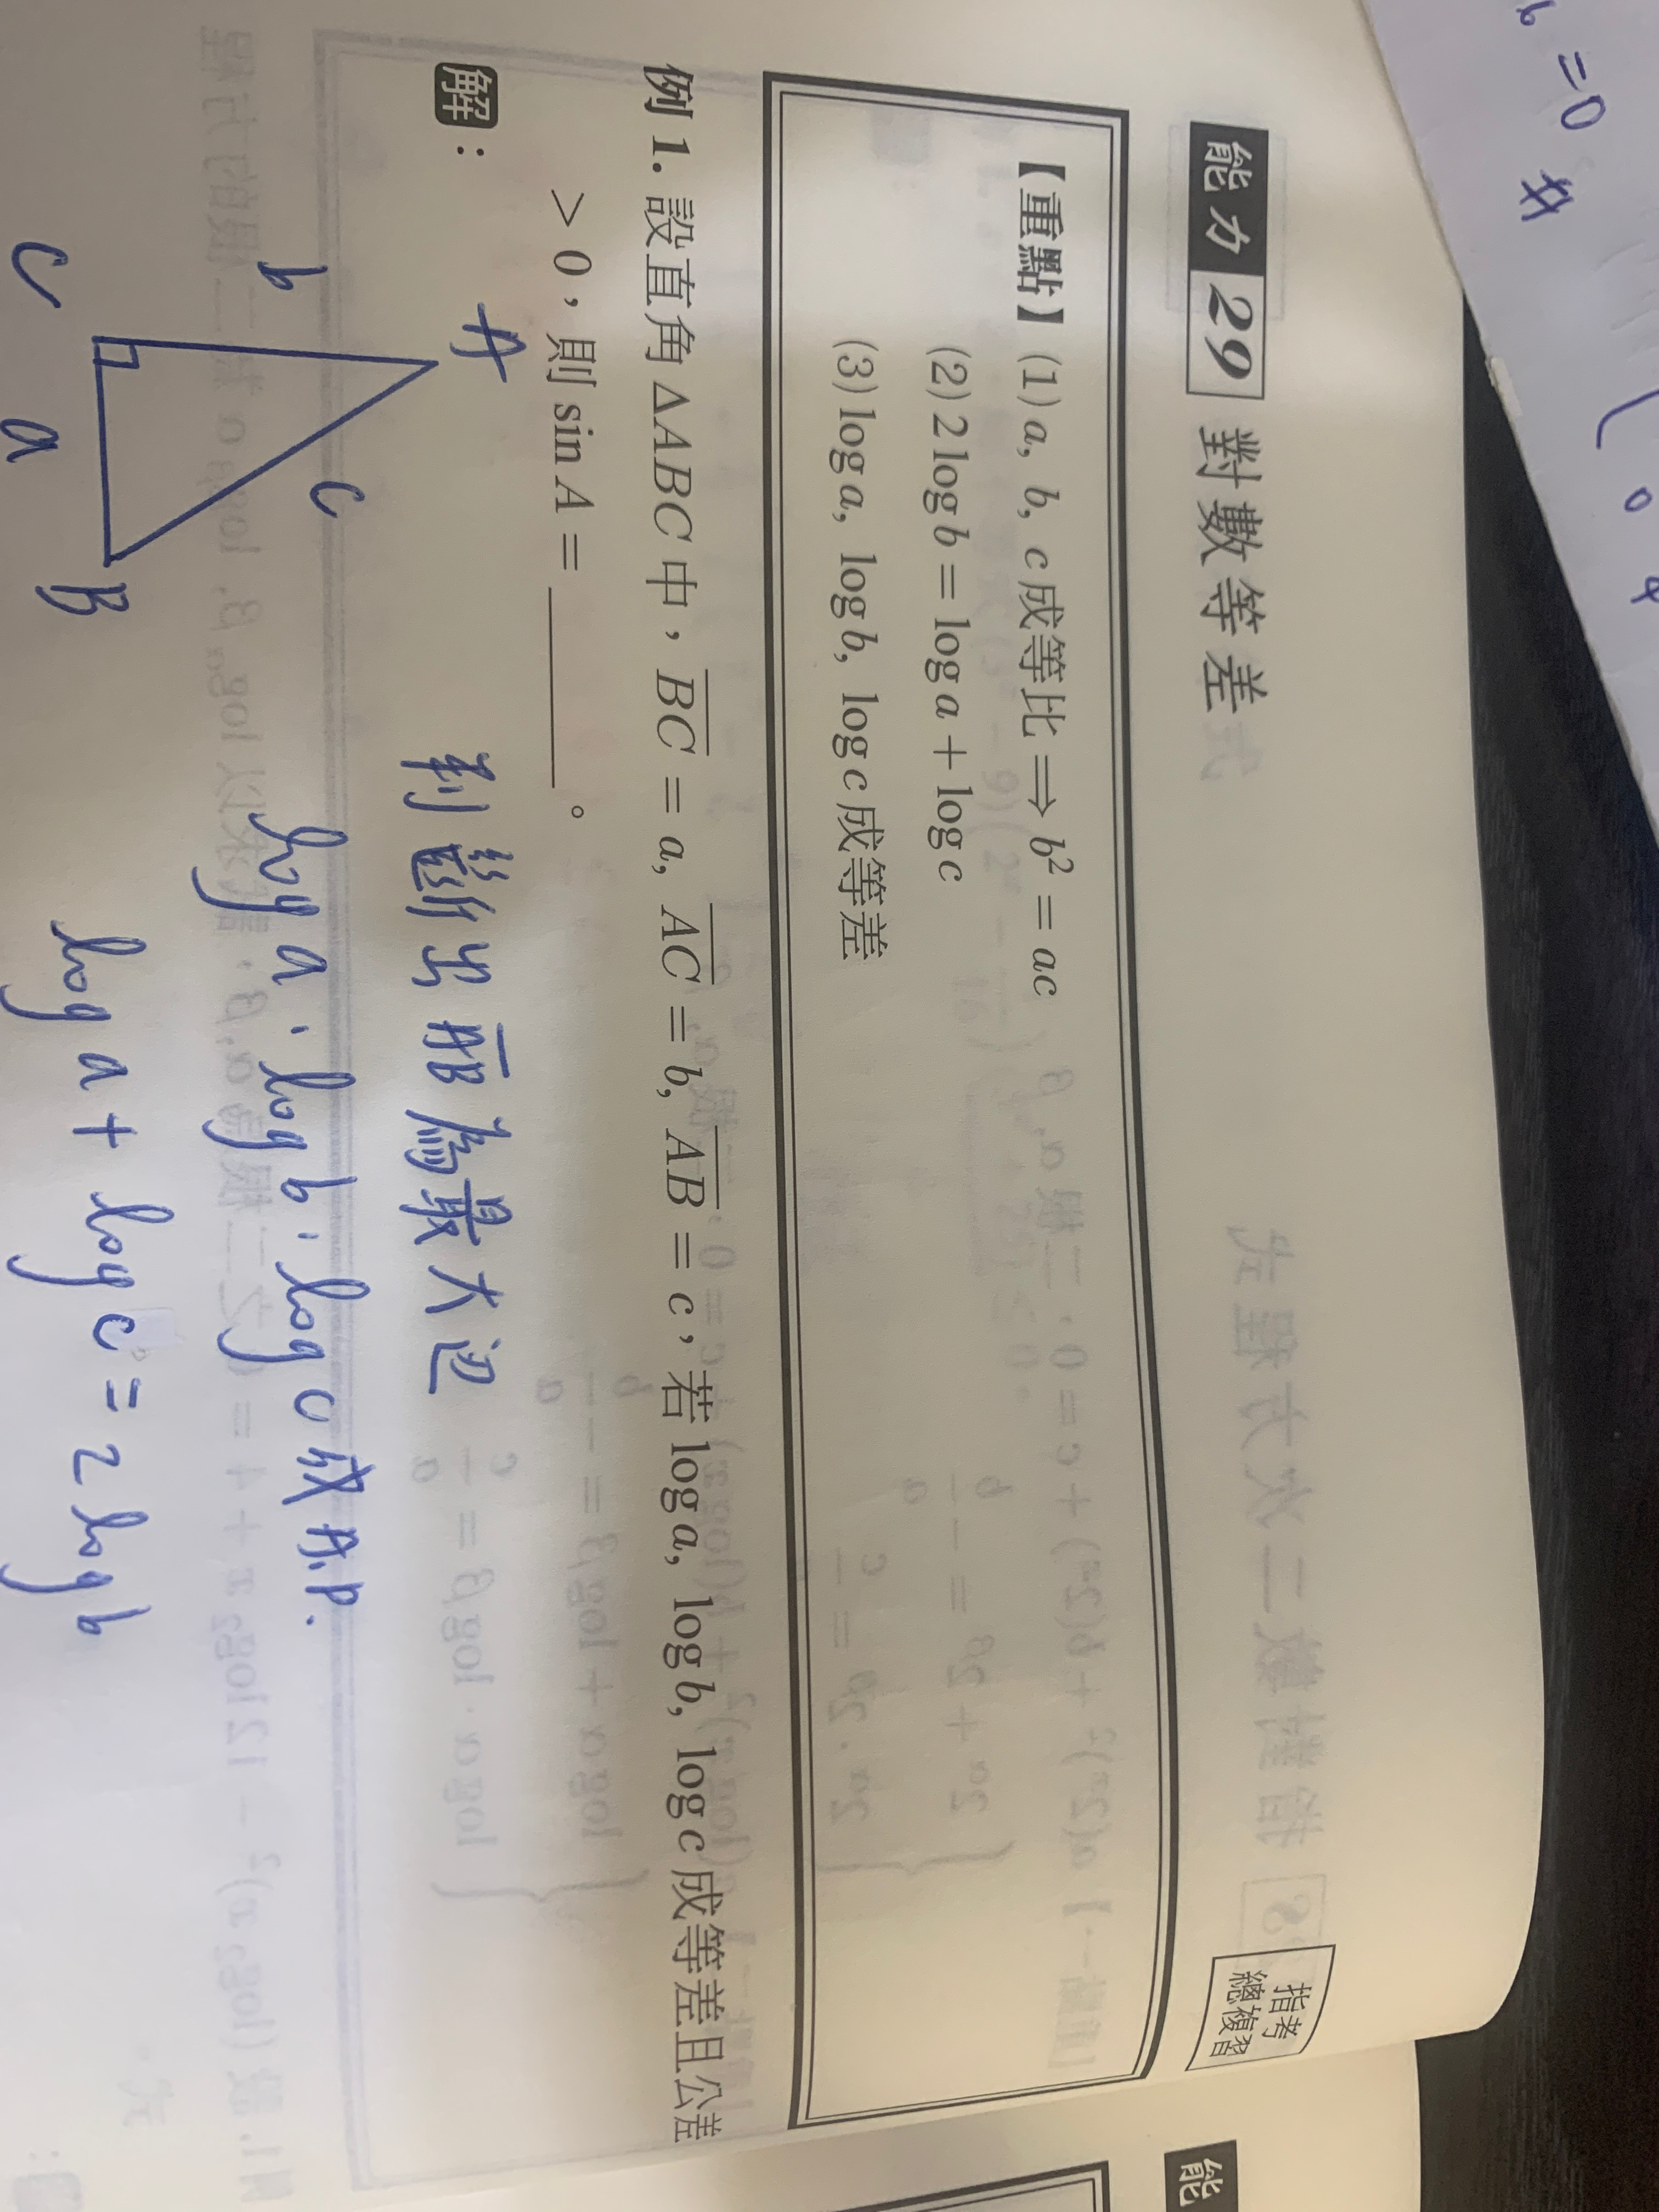 b = 0 #
0 4
能力 29 對數等差
指考
總複習
【重點】(1) a, b, c 成等比 ⇒ b² = ac
(2) 2 log b = log a + log c
(3) log a, log b, log c 成等差
例 1. 設直角 ΔABC 中，BC = a, AC = b, AB = c，若 log a, log b, log c 成等差且公差
> 0，則 sin A = ______。
解：
判斷出 AB 為最大边
log a , log b , log c 成 A.P.
log a + log c = 2 log b
A
b
c
C
a
B
能